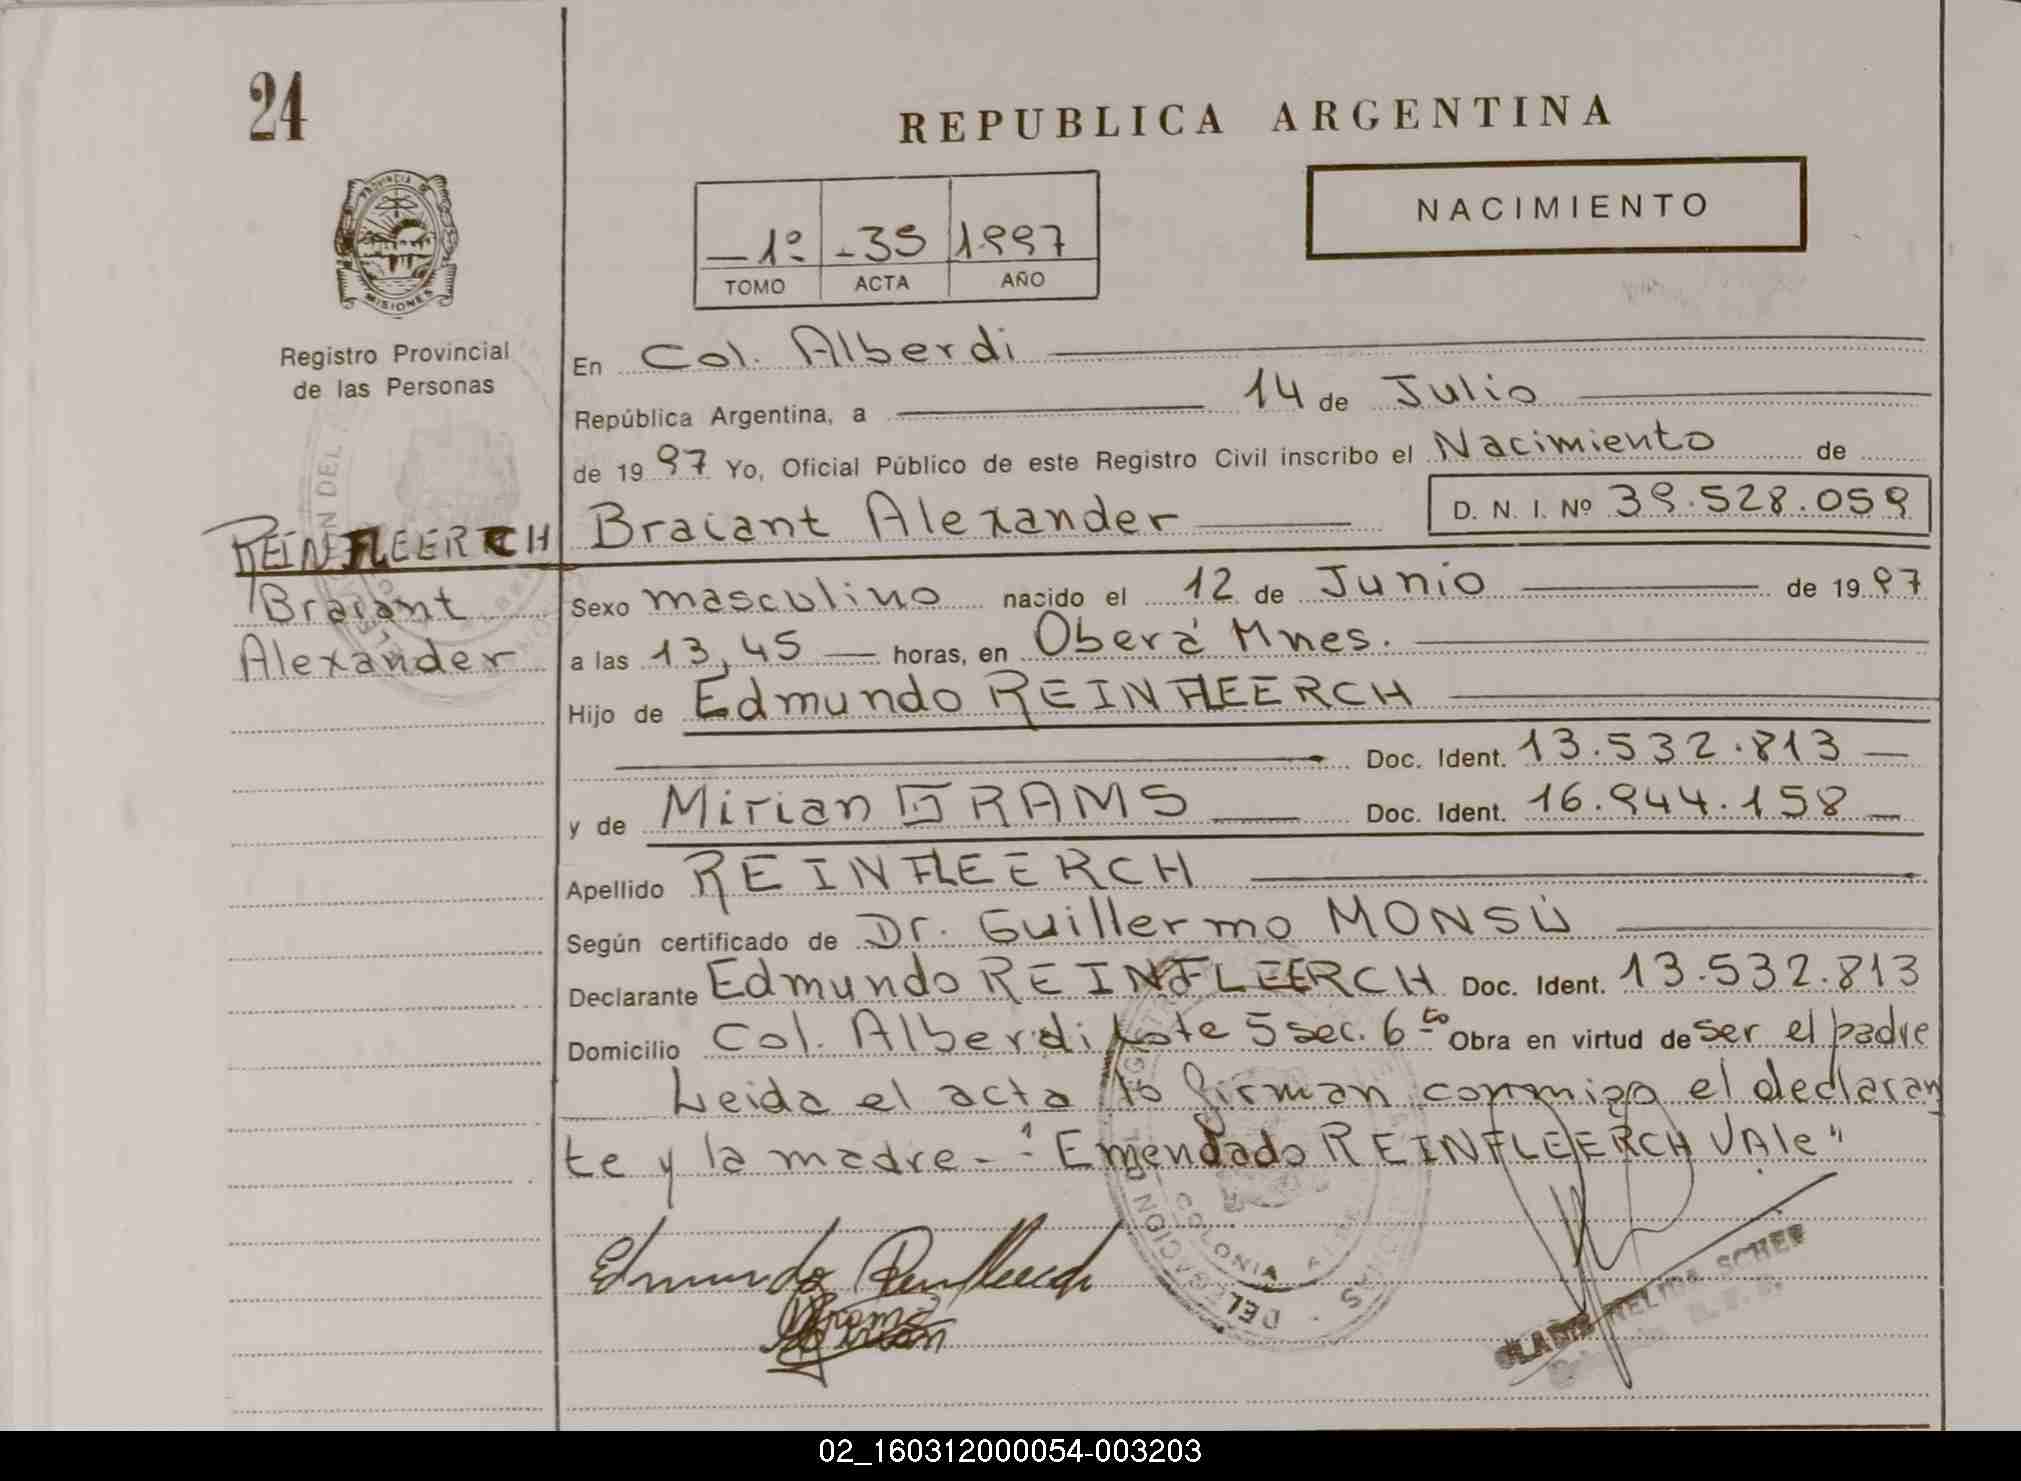 24
REPUBLICA ARGENTINA
NACIMIENTO
PROVINCIA DE
MISIONES
Registro Provincial
de las Personas
1º 35 1997
TOMO ACTA AÑO
En Col. Alberdi
República Argentina, a 14 de Julio
de 1997 Yo, Oficial Público de este Registro Civil inscribo el Nacimiento de
Braiant Alexander D. N. I. Nº 39.528.059
REINFLEERCH
Braiant
Alexander
Sexo masculino nacido el 12 de Junio de 1997
a las 13,45 horas, en Oberá Mnes.
Hijo de Edmundo REINFLEERCH
Doc. Ident. 13.532.813
y de Mirian GRAMS Doc. Ident. 16.944.158
Apellido REINFLEERCH
Según certificado de Dr. Guillermo MONSÚ
Declarante Edmundo REINFLEERCH Doc. Ident. 13.532.813
Domicilio Col. Alberdi Lote 5 sec. 6to Obra en virtud de ser el padre
Leida el acta lo firman conmigo el declaran
te y la madre - "Emendado REINFLEERCH Vale"
Edmundo Reinfleerch
DELEGACION
COLONIA
NELIDA SCHER
02_160312000054-003203